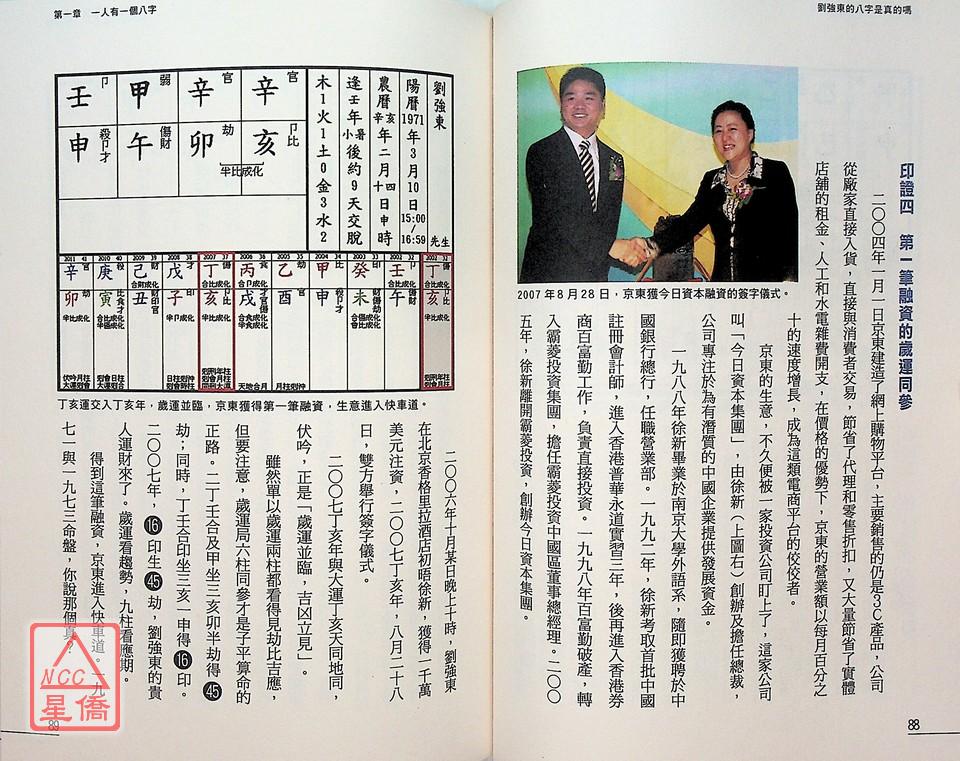 劉強東的八字是真的嗎
印證四　第一筆融資的歲運同參
二〇〇四年一月一日京東建造了網上購物平台，主要銷售的仍是3C產品，公司
從廠家直接入貨，直接與消費者交易，節省了代理和零售折扣，又大量節省了實體
店舖的租金、人工和水電雜費開支，在價格的優勢下，京東的營業額以每月百分之
十的速度增長，成為這類電商平台的佼佼者。
京東的生意，不久便被一家投資公司盯上了，這家公司
叫「今日資本集團」，由徐新（上圖右）創辦及擔任總裁，
公司專注於為有潛質的中國企業提供發展資金。
一九八八年徐新畢業於南京大學外語系，隨即獲聘於中
國銀行總行，任職營業部。一九九二年，徐新考取首批中國
註冊會計師，進入香港普華永道實習三年，後再進入香港券
商百富勤工作，負責直接投資。一九九八年百富勤破產，轉
入霸菱投資集團，擔任霸菱投資中國區董事總經理。二〇〇
五年，徐新離開霸菱投資，創辦今日資本集團。
2007年8月28日，京東獲今日資本融資的簽字儀式。
88
第一章　一人有一個八字
劉強東　先生
陽曆1971年3月10日15:00/16:59
農曆辛亥年二月十四日申時
逢壬年小暑後約9天交脫
木1火1土0金3水2
官 辛 亥 卩比
官 辛 卯 劫
半比成化
弱 甲 午 傷財
卩 壬 申 殺卩才
2002 32 丁 傷 亥 卩比
2002 32 壬 卩 午 傷財
2003 33 癸 印 未
2004 34 甲 比 申 殺卩才
2005 35 乙 劫 酉 官
2006 36 丙 食 戌
2007 37 丁 傷 亥 卩比
2008 38 戊 才 子 印
2009 39 己 財 丑
2010 40 庚 殺 寅
2011 41 辛 官 卯 劫
丁亥運交入丁亥年，歲運並臨，京東獲得第一筆融資，生意進入快車道。
二〇〇六年十月某日晚上十時，劉強東
在北京香格里拉酒店初晤徐新，獲得一千萬
美元注資，二〇〇七丁亥年，八月二十八
日，雙方舉行簽字儀式。
二〇〇七丁亥年與大運丁亥天同地同，
伏吟，正是「歲運並臨，吉凶立見」。
雖然單以歲運兩柱都看得見劫比吉應，
但要注意，歲運局六柱同參才是子平算命的
正路。二丁壬合及甲坐三亥卯半劫得45
劫；同時，丁壬合印坐三亥一申得16印。
二〇〇七年，16印生45劫，劉強東的貴
人運財來了。歲運看趨勢，九柱看應期。
得到這筆融資，京東進入快車道。一九
七一與一九七三命盤，你說那個真？
NCC
星僑
89